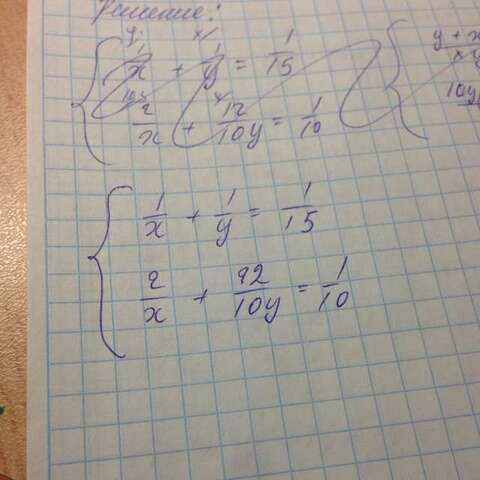 Решение:
1/x + 1/y = 1/15
2/x + 12/10y = 1/10
1/x + 1/y = 1/15
2/x + 12/10y = 1/10